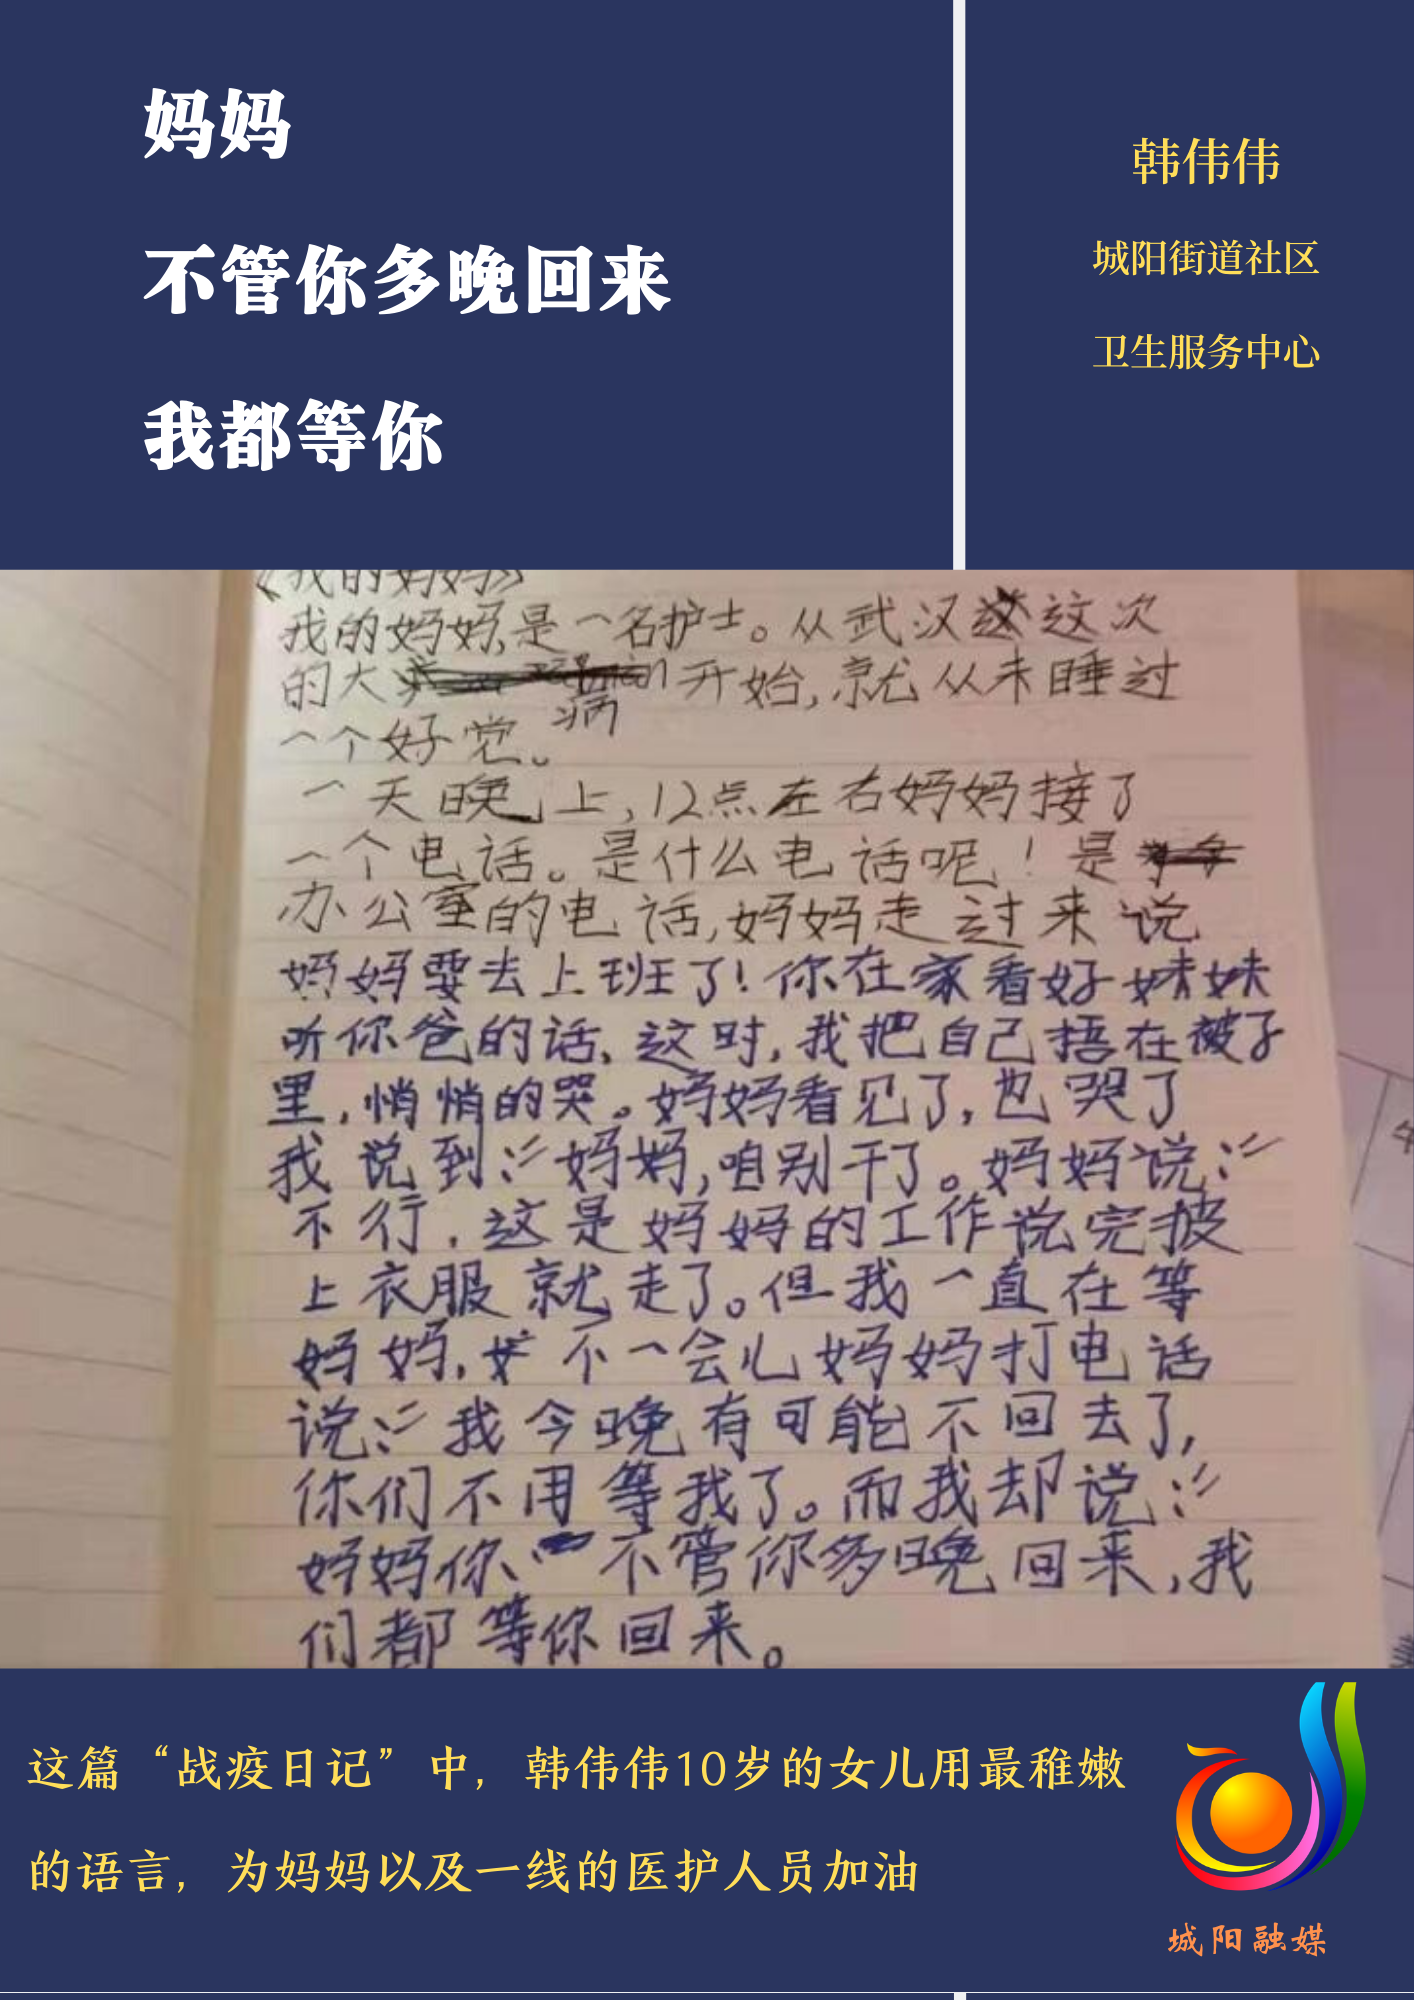 妈妈
不管你多晚回来
我都等你
韩伟伟
城阳街道社区
卫生服务中心
《我的妈妈》
我的妈妈,是一名护士。从武汉这次
的大病开始,就从未睡过
一个好觉。
一天晚上,12点左右妈妈接了
一个电话。是什么电话呢!是
办公室的电话,妈妈走过来说
妈妈要去上班了!你在家看好妹妹
听你爸的话、这时,我把自己捂在被子
里,悄悄的哭。妈妈看见了,也哭了
我说到:“妈妈,咱别干了。妈妈说:“
不行.这是妈妈的工作说完披
上衣服就走了。但我一直在等
妈妈,不一会儿妈妈打电话
说:“我今晚有可能不回去了,
你们不用等我了。而我却说:“
妈妈你、不管你多晚回来,我
们都等你回来。
这篇“战疫日记”中，韩伟伟10岁的女儿用最稚嫩
的语言，为妈妈以及一线的医护人员加油
城阳融媒